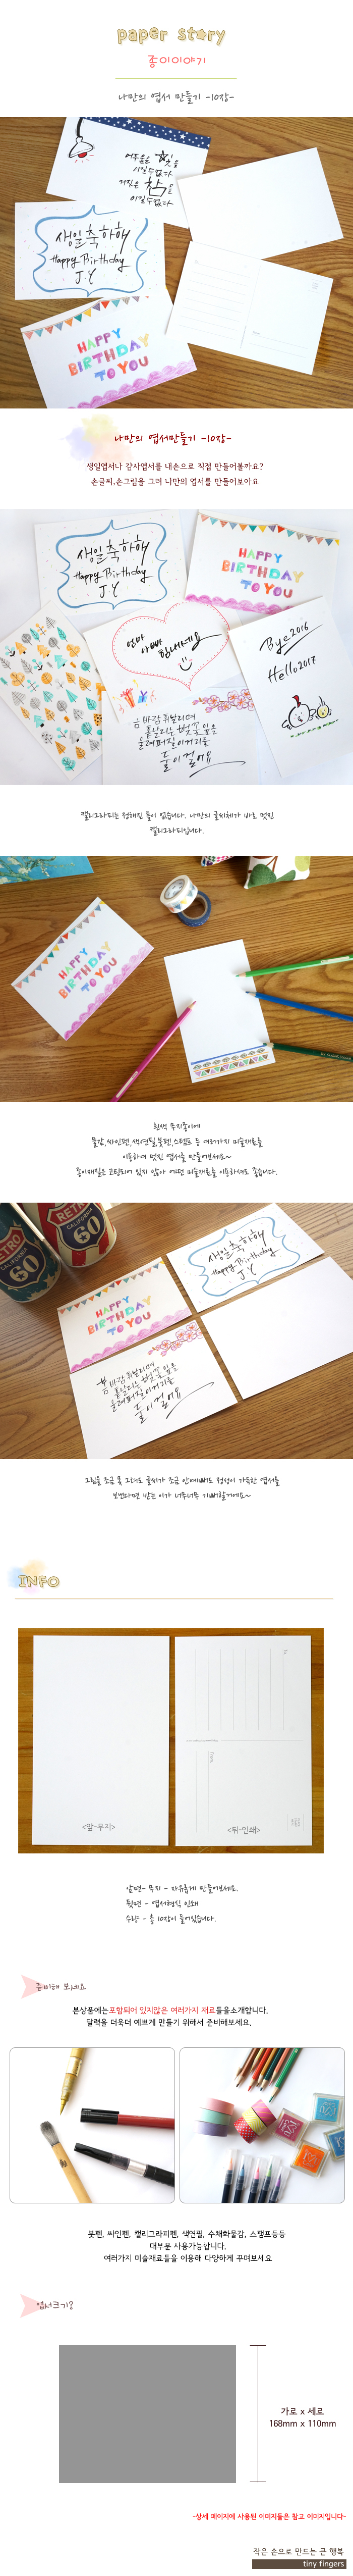 paper story
종이이야기
나만의 엽서 만들기 -10장-
어둠은 빛을
이길 수 없다
거짓은 참을
이길 수 없다
생일축하해
Happy Birthday
J.Y
HAPPY
BIRTHDAY
TO YOU
나만의 엽서만들기 -10장-
생일엽서나 감사엽서를 내손으로 직접 만들어볼까요?
손글씨,손그림을 그려 나만의 엽서를 만들어보아요
생일축하해
Happy Birthday
J.Y
HAPPY
BIRTHDAY
TO YOU
엄마
아빠 힘내세요
Bye2016
Hello2017
봄바람 휘날리며
흩날리는 벚꽃잎은
울려퍼질 이거리를
둘이 걸어요
캘리그라피는 정해진 틀이 없습니다. 나만의 글씨체가 바로 멋진
캘리그라피입니다.
HAPPY
BIRTHDAY
TO YOU
흰색 무지종이에
물감,싸인펜,색연필,붓펜,스탬프 등 여러가지 미술재료를
이용하여 멋진 엽서를 만들어보세요~
종이재질은 코팅되어 있지 않아 어떤 미술재료를 이용하셔도 좋습니다.
RETRO
CALIFORNIA
60
생일축하해
Happy Birthday
J.Y
HAPPY
BIRTHDAY
TO YOU
봄바람 휘날리며
흩날리는 벚꽃잎은
울려퍼질 이거리를
둘이 걸어요
그림을 조금 못 그려도 글씨가 조금 안예뻐도 정성이 가득한 엽서를
보낸다면 받는 이가 너무너무 기뻐할거에요~
INFO
<앞-무지>
<뒤-인쇄>
앞면- 무지 - 자유롭게 만들어보세요.
뒷면 - 엽서형식 인쇄
수량 - 총 10장이 들어있습니다.
준비해 보세요
본상품에는포함되어 있지않은 여러가지 재료들을소개합니다.
달력을 더욱더 예쁘게 만들기 위해서 준비해보세요.
붓펜, 싸인펜, 캘리그라피펜, 색연필, 수채화물감, 스탬프등등
대부분 사용가능합니다.
여러가지 미술재료들을 이용해 다양하게 꾸며보세요
엽서크기?
가로 x 세로
168mm x 110mm
-상세 페이지에 사용된 이미지들은 참고 이미지입니다-
작은 손으로 만드는 큰 행복
tiny fingers